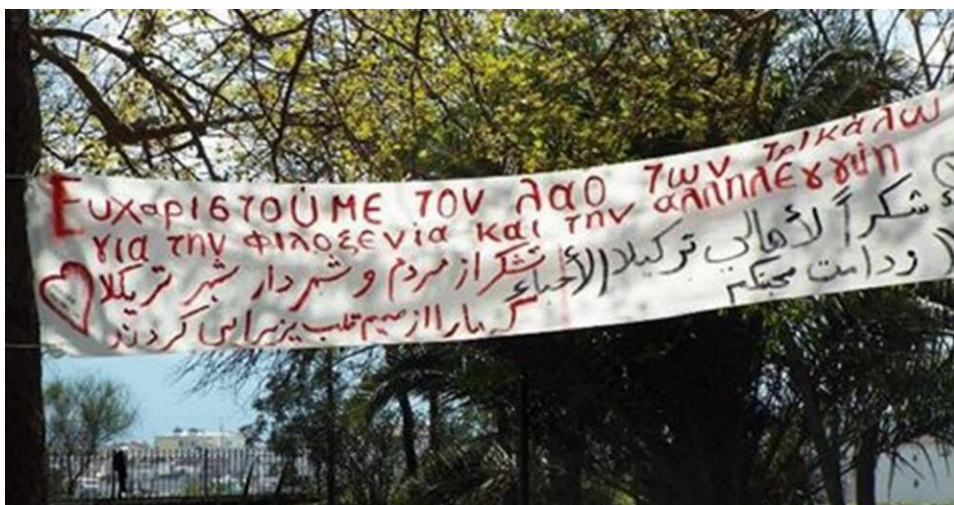 Ευχαριστούμε τον λαο των τρικάλω
για την φιλοξενία και την αλληλέγγυη
شكراً لأهالي تركيلا (الأحباء
ودامت محبتكم
تشكر از مردم و شهردار شهر تریکلا
که ما را از صمیم قلب پزیرایی کردند